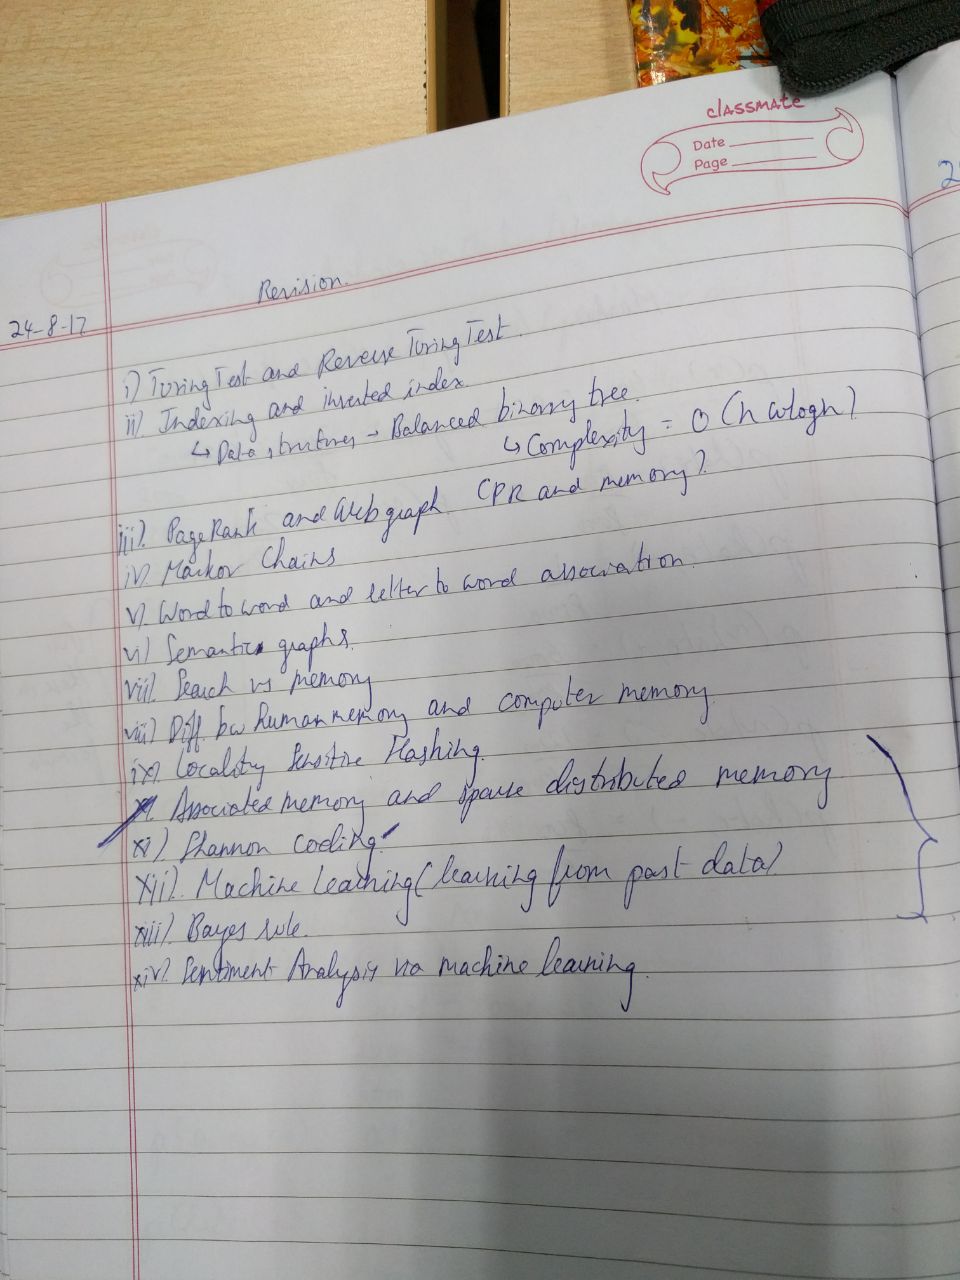 classmate
Date
Page
Revision.
24-8-17
i) Turing Test and Reverse Turing Test.
ii). Indexing and inverted index
↳ Data structures → Balanced binary tree.
↳ Complexity = O(n log n)
iii). PageRank and Web graph. CPR and memory?
iv). Markov Chains
v). Word to word and letter to word association.
vi) Semantic graphs.
vii). Search vs memory
viii) Diff. bw human memory and computer memory.
ix). Locality Sensitive Hashing.
x). Associated memory and sparse distributed memory
xi) Shannon Coding.
xii). Machine learning (learning from past data)
xiii). Bayes rule.
xiv). Sentiment Analysis via machine learning.